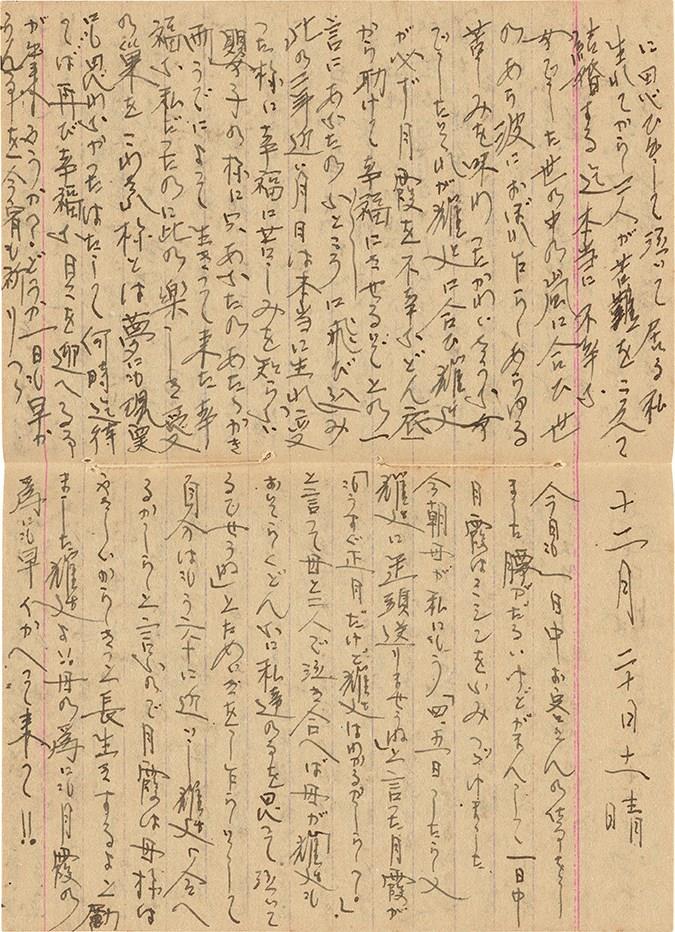 に思ひ出して泣いて居る私
生れてから二人が苦難をこえて
結婚する迄本当に不幸な
女でした世の中の嵐に合ひ世
のあら波におぼれ乍らあらゆる
苦しみを味わったかわいそうな女
でしたそれが雄丈に合ひ雄丈
が必ず月霞を不幸などん底
から助けて幸福にさせるぞとの一
言にあなたのふところに飛び込み
此の二年近い月日は本当に生れ変
った様に幸福に苦しみを知らない
嬰子の様に只あなたのあたゝかき
両うでによって生きて来た幸
福な私だったのに此の楽しき愛
の巣をこわされ様とは夢にも現実
にも思わなかったはたして何時迄待
てば再び幸福な日を迎へる事
が出来やうか?どうか一日も早か
らん事を今宵も祈りつゝ
十二月二十日土晴
今日も一日中お客さんの仕事をし
ました腰がだるいけどがまんして一日中
月霞はミシンをふみつゞけました
今朝母が私にもう「四、五日したら又
雄丈に送頭送りませうね」と言った月霞が
「もうすぐ正月だけど雄丈はわかるかしら?」
と言って母と二人で泣き合へば母が「雄丈も
おそらくどんなに私達の事を思って泣いて
るでせうね」とためいきをし乍らそして
自分はもう六十に近いし雄丈に会へ
るかしらと言ふので月霞は母様は
やさしいからきっと長生きするよと勵
ました雄丈よ!!母の為にも月霞の
為にも早くかへって来て!!